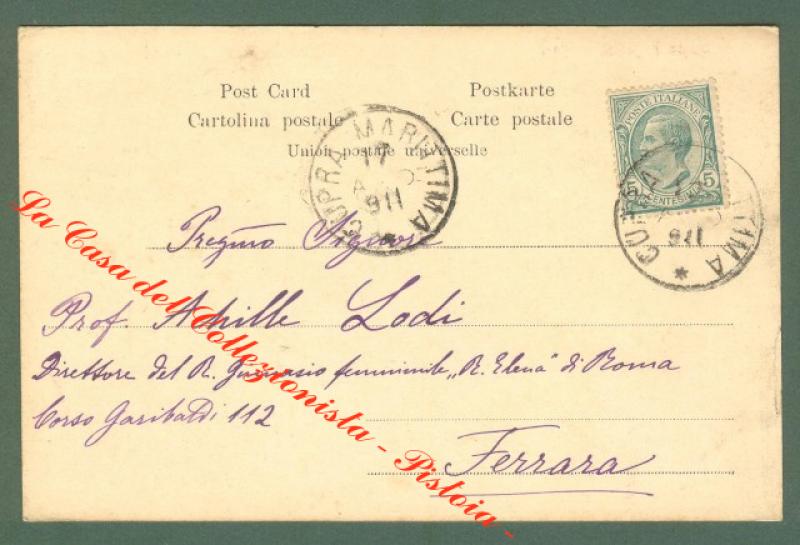 Post Card
Postkarte
Cartolina postale
Carte postale
Union postale universelle
CUPRA MARITTIMA
17
911
POSTE ITALIANE
5
5
CENTESIMI
CUP
TIMA
911
*
Pregmo Signore
Prof. Achille Lodi
Direttore del R. Ginnasio femminile „R. Elena" di Roma
Corso Garibaldi 112
Ferrara
La Casa del Collezionista - Pistoia -